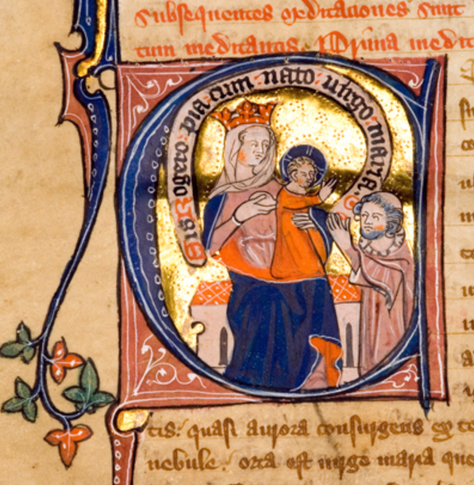 subsequentes meditaciones sunt
tum meditanos. Prima medit
Sis Rogero pia cum nato virgo maria
tis: quasi aurora consurgens
nebule. orta est virgo maria que